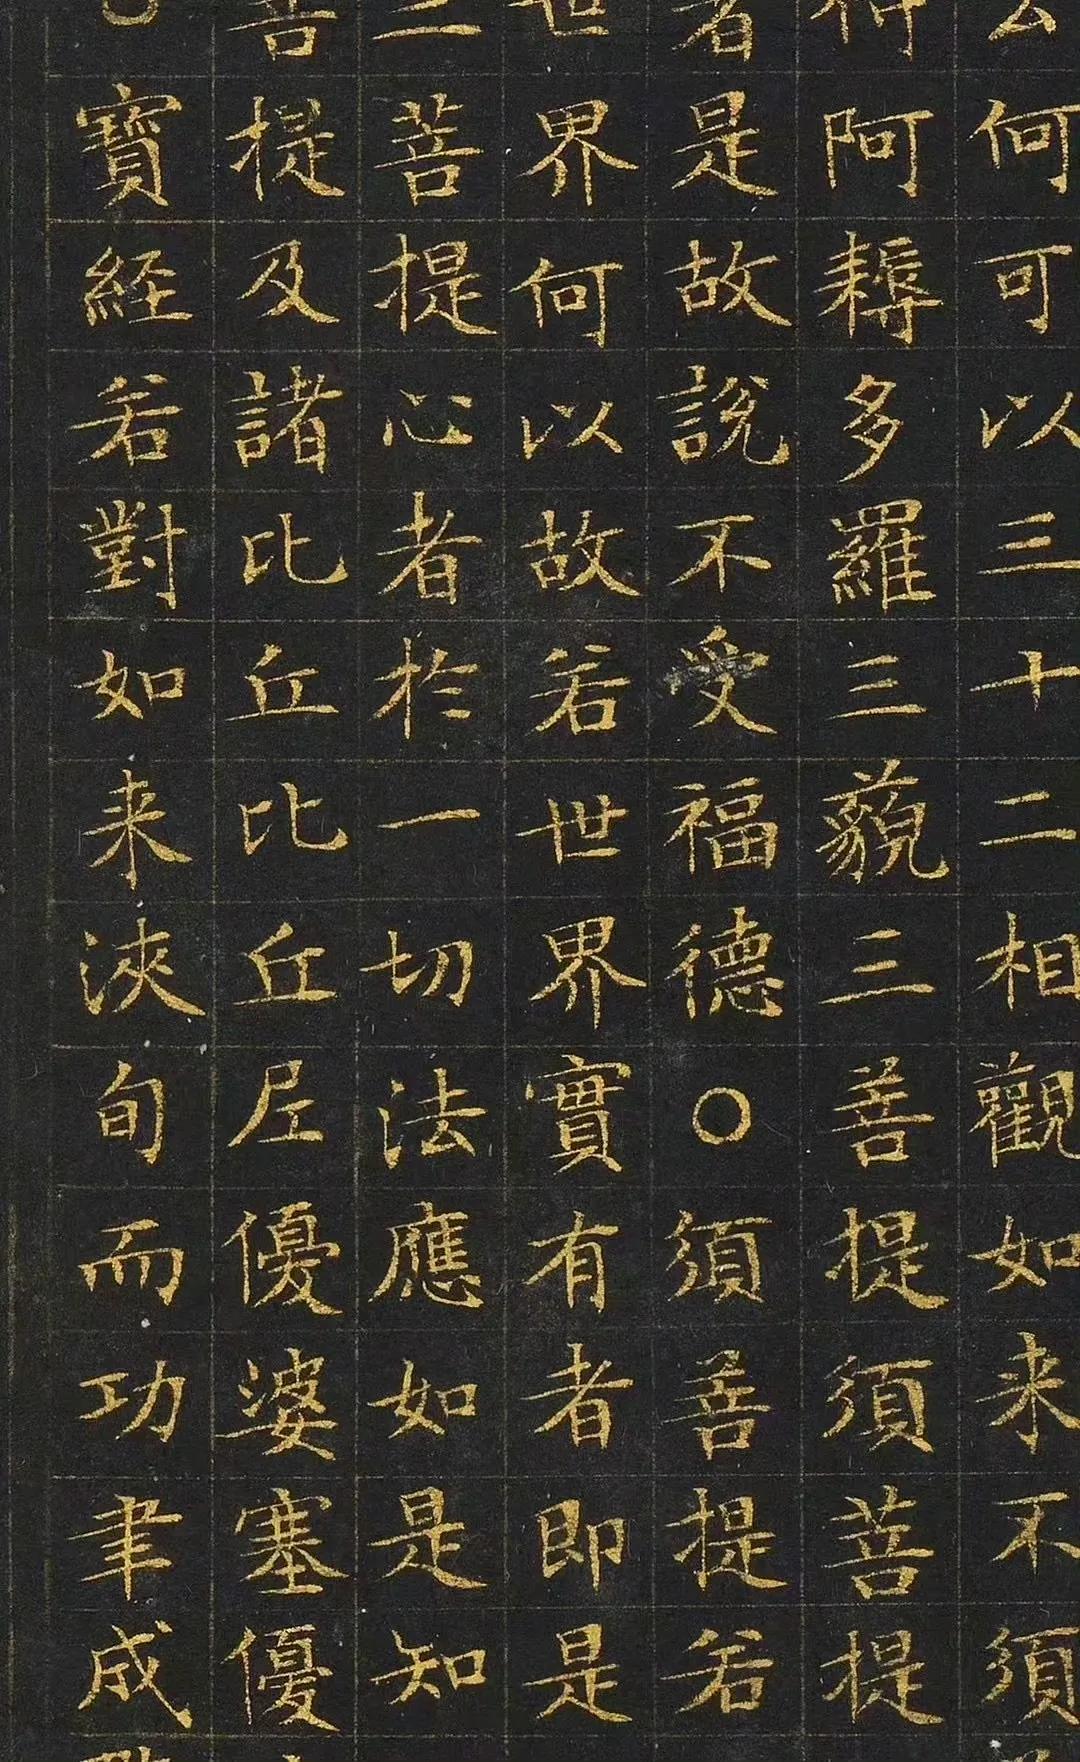 云何可以三十二相觀如来不須
阿耨多羅三藐三菩提須菩提
者是故說不受福德○須菩提若
世界何以故若世界實有者即是
三菩提心者於一切法應如是知
菩提及諸比丘比丘尼優婆塞優
寶經若對如来浹旬而功聿成